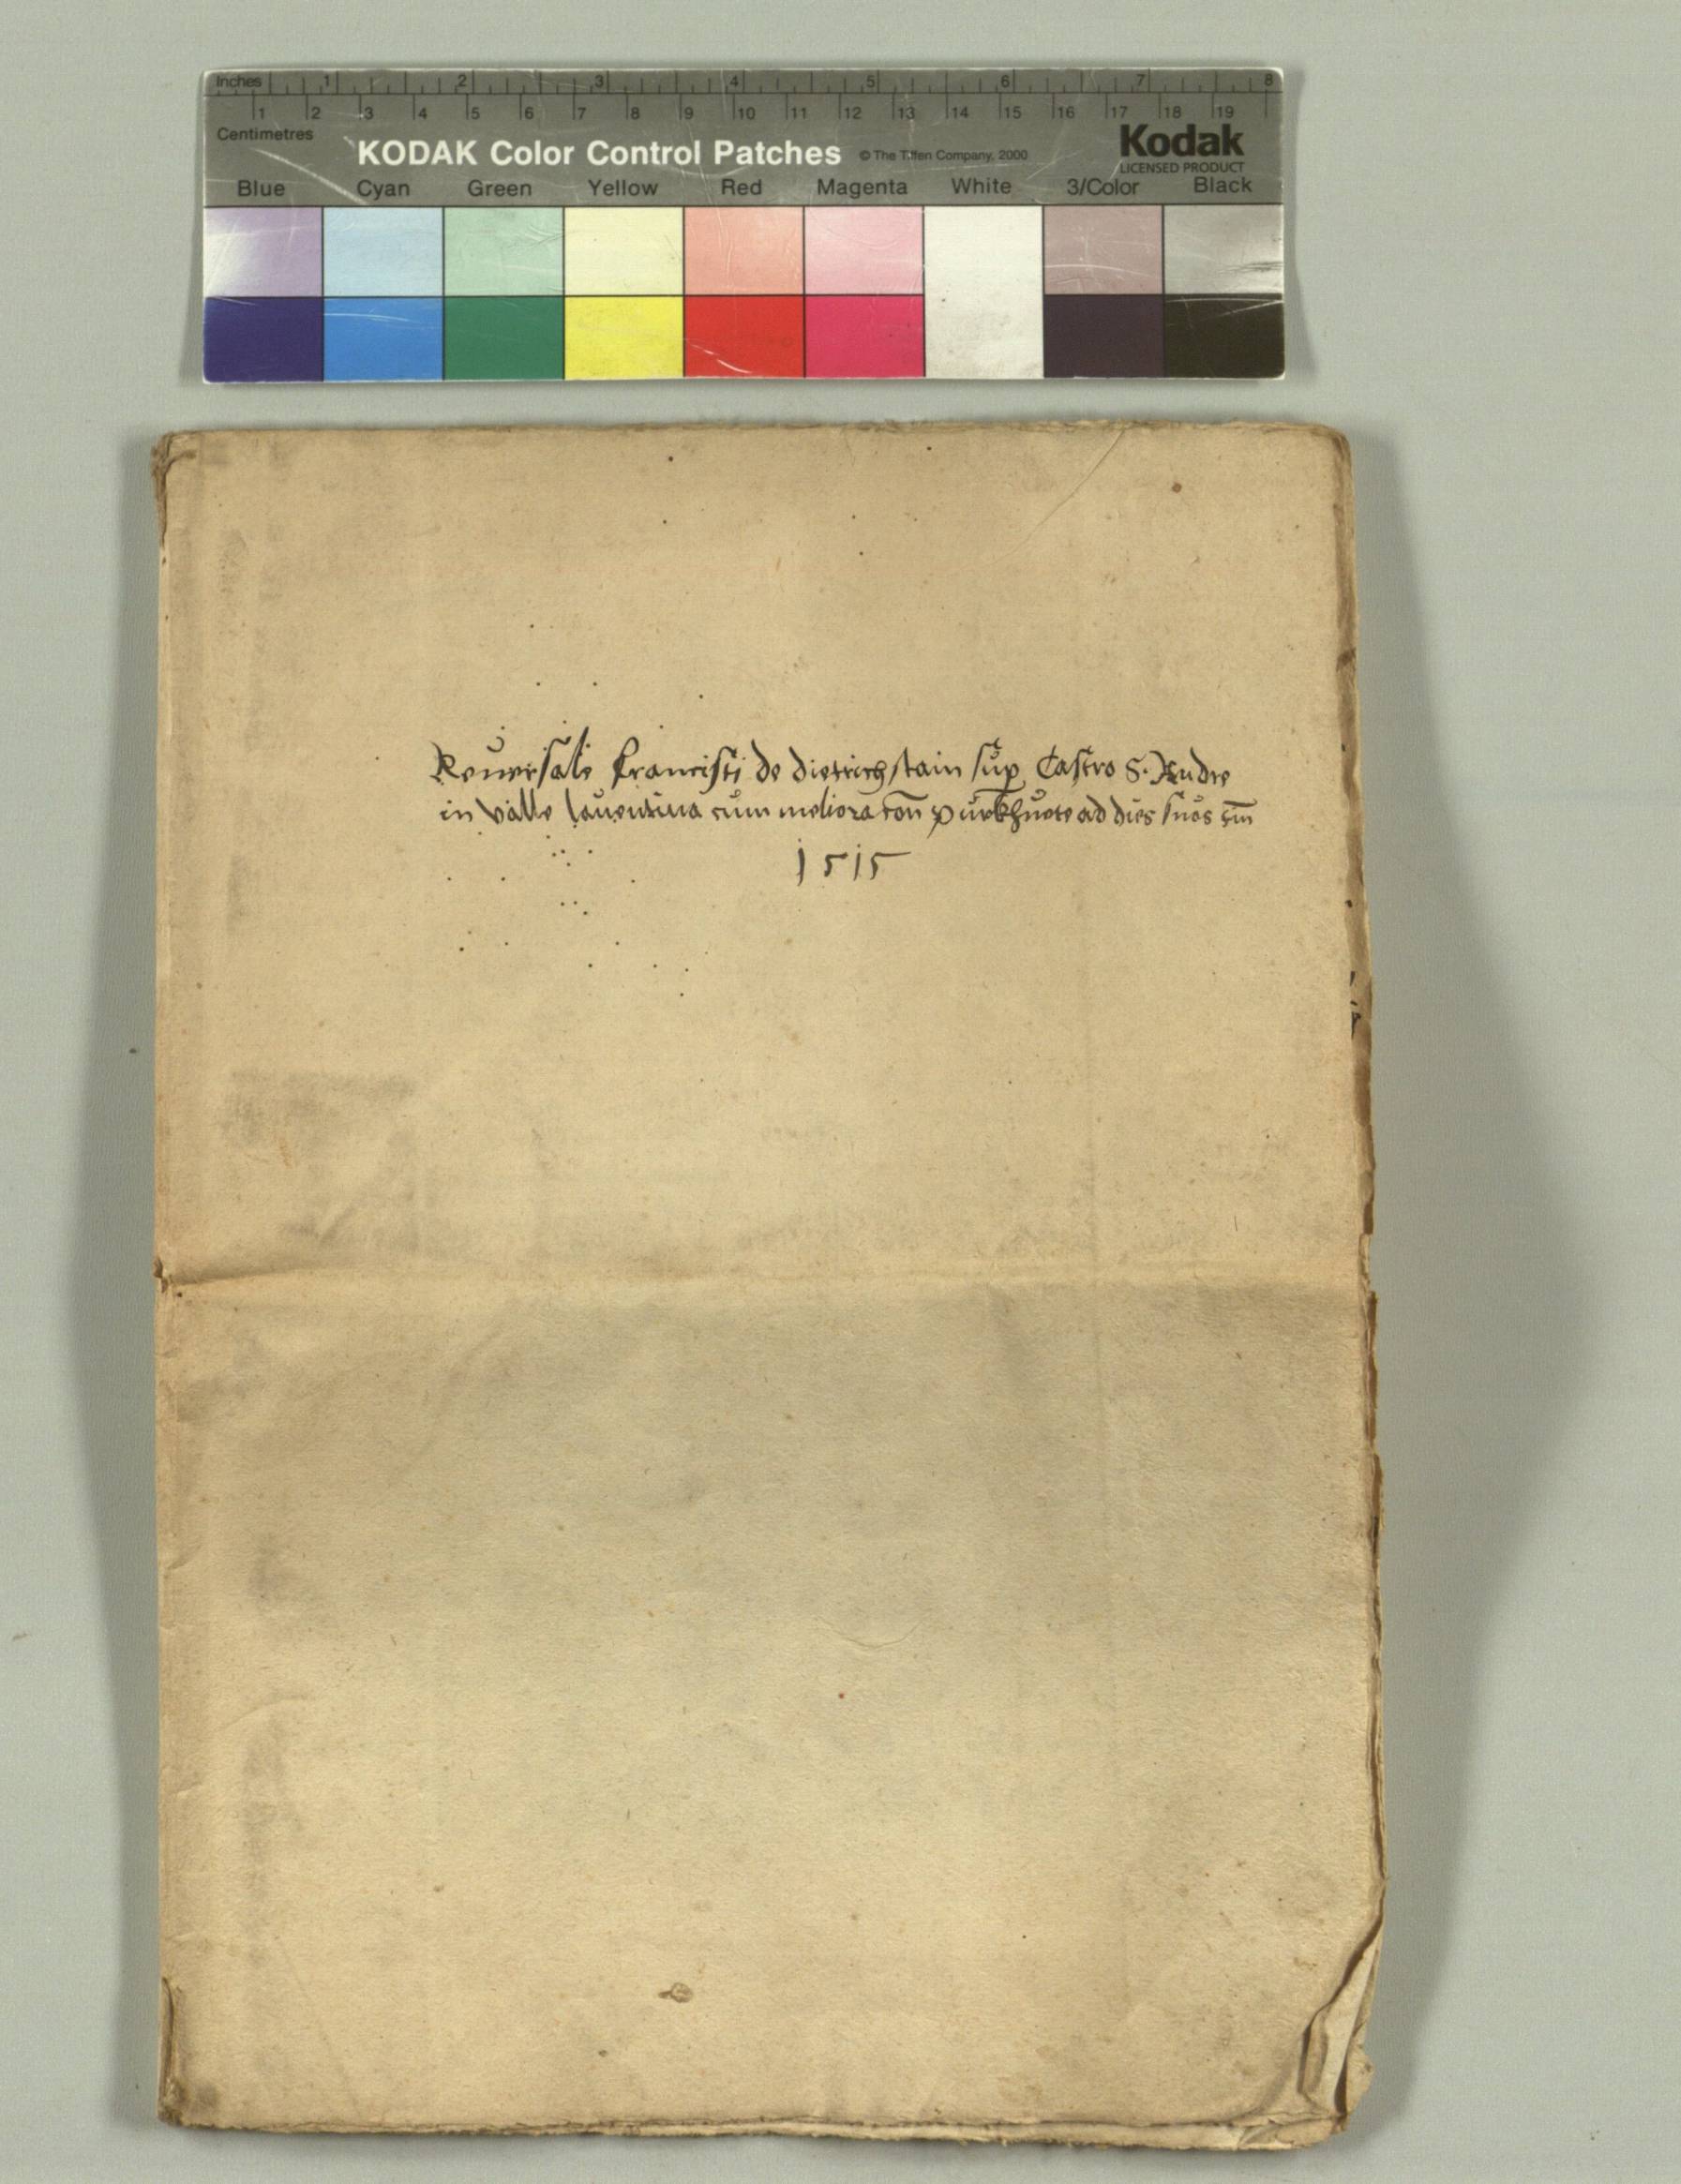 Inches 1 2 3 4 5 6 7 8
1 2 3 4 5 6 7 8 9 10 11 12 13 14 15 16 17 18 19
Centimetres
KODAK Color Control Patches © The Tiffen Company, 2000 Kodak
LICENSED PRODUCT
Blue Cyan Green Yellow Red Magenta White 3/Color Black
Reuersale Francisci de Dietrichstain sup Castro S. Andre
in valle lauentina cum melioracon purkhuete ad dies suos
1515